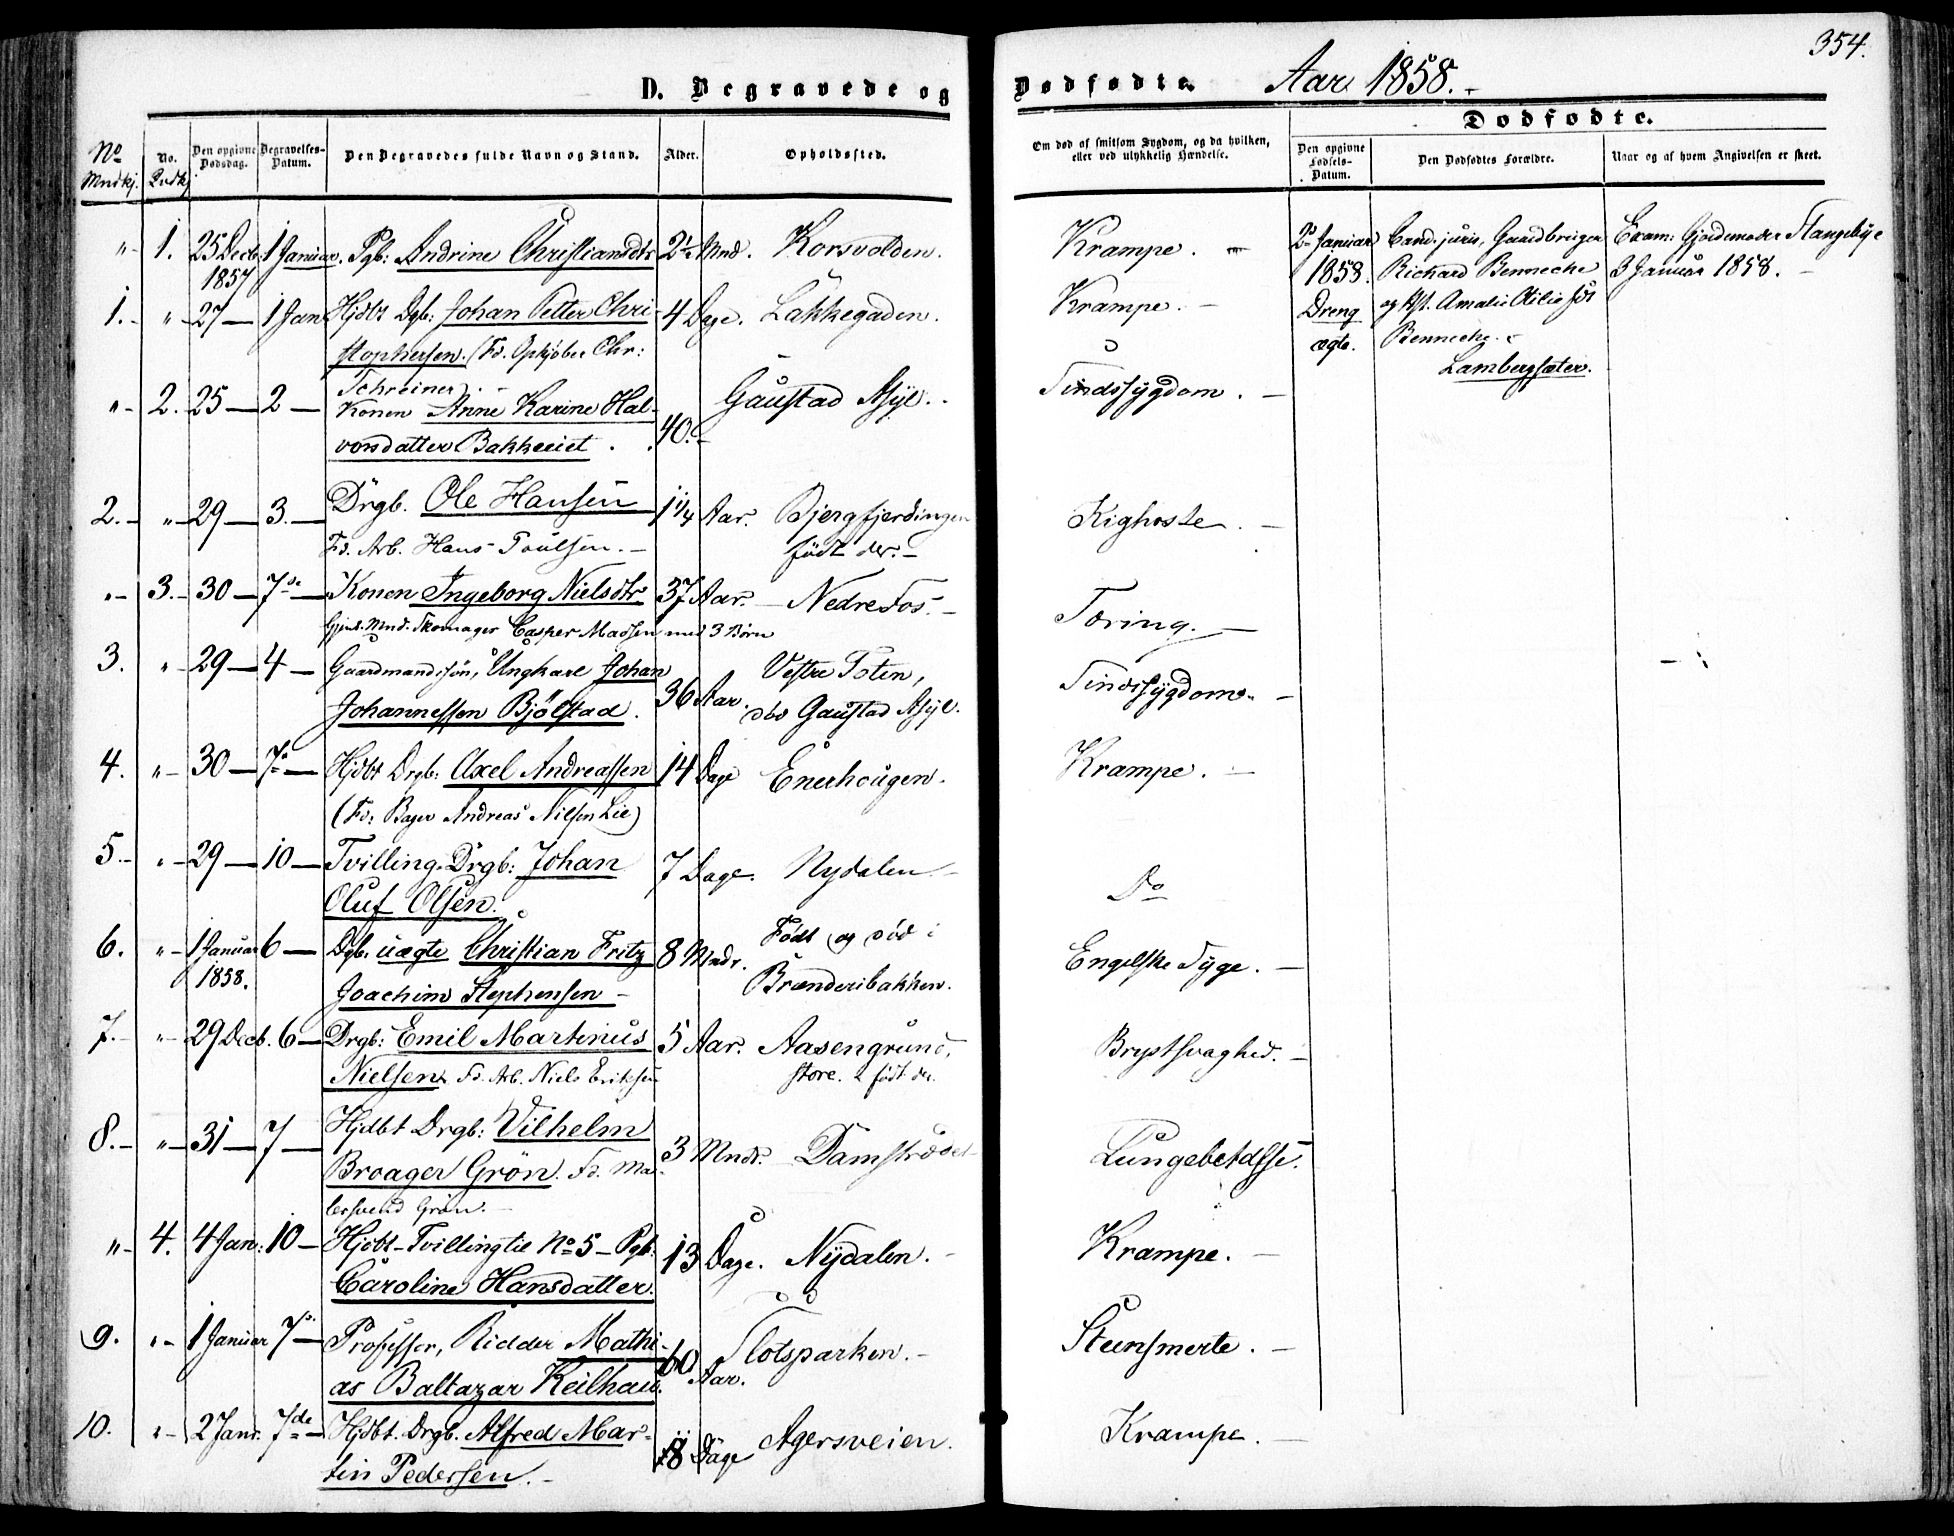 354.
D. Begravede og Dødfødte. Aar 1858.
Dødfødte.
No Mndkj. No. Qvdkj. Den opgivne Dødsdag. Begravelses-Datum. Den Begravedes fulde Navn og Stand. Alder. Opholdssted.
Om død af smitsom Sygdom, og da hvilken, eller ved ulykkelig Hændelse. Den opgivne Fødsels-Datum. Den Dødfødtes Forældre. Naar og af hvem Angivelsen er skeet.
" 1. 25 Decb. 1 Januar. Pgb: Andrine Christiansdtr 2½ Mnd. Korsvolden. Krampe. —
1857
1. " 27 — 1 Jan Hjdbt Dgb: Johan Petter Chri- 4 Dage. Lakkegaden. Krampe. —
stophersen. (Fd. Opkjøber Chr:
Schreiner). —
" 2. 25 — 2 — Konen Anne Karine Hal- 40. Gaustad Asyl. Sindssygdom. —
vorsdatter Bakkeeiet.
2. — " 29 — 3. — Drgb. Ole Hansen 1¼ Aar. Bjergfjerdingen Kighoste. —
Fd. Arb. Hans Poulsen. — født der. —
" 3. — 30 — 7de — Konen Ingeborg Nielsdtr 37 Aar. — Nedre Fos. — Tæring. —
Gjenl. Mnd. Skomager Casper Madsen med 3 Børn
3. " 29 — 4 — Gaardmandssøn, Ungkarl Johan 36 Aar. Vestre Toten, Sindssygdom. —
Johannessen Bjølstad. dbs Gaustad Asyl.
4. " 30 — 7de — Hjdbt Drgb: Axel Andreassen 14 Dage Enerhougen. Krampe. —
(Fd: Bager Andreas Nilsen Lie)
5. — " 29 — 10 — Tvilling. Drgb: Johan 7 Dage. Nydalen. — Do
Oluf Olsen.
6. " 1 Januar 6 — Dgb. uægte Christian Fritz 8 Mndr. Født og død i Engelske Syge. —
1858. Joachim Stephensen — Brænderibakken.
7. — " 29 Decb. 6 — Drgb: Emil Martinius 5 Aar. Aasengrund, Brystsvaghed. —
Nielsen Fd. Arb. Niels Eriksen store. født der.
8. — " 31 — 7 — Hjdbt Drgb: Vilhelm 3 Mndr. Damstrædet Lungebetdse.
Broager Grøn. Fd. Ma-
lersvend Grøn. —
" 4. 4 Jan: 10 — Hjdbt — Tvilling til No 5 — Pgb: 13 Dage. Nydalen. — Krampe. —
Caroline Hansdatter.
9. " 1 Januar 7de — Professor, Ridder Mathi- 60 Aar. Slotsparken. — Steensmerte. —
as Baltazar Keilhau.
10. " 2 Janr. 7de — Hjdbt. Drgb. Alfred Mar- 18 Dage Agersveien. Krampe. —
tin Pedersen. —
2 Januar Cand. juris, Gaardbruger
1858. Richard Benneche
Dreng og Hst. Amalie Otilie født
ægte. Benneche.
Lambergsæter.
Exam: Gjordemoder Stangebye
3 Januar 1858. —